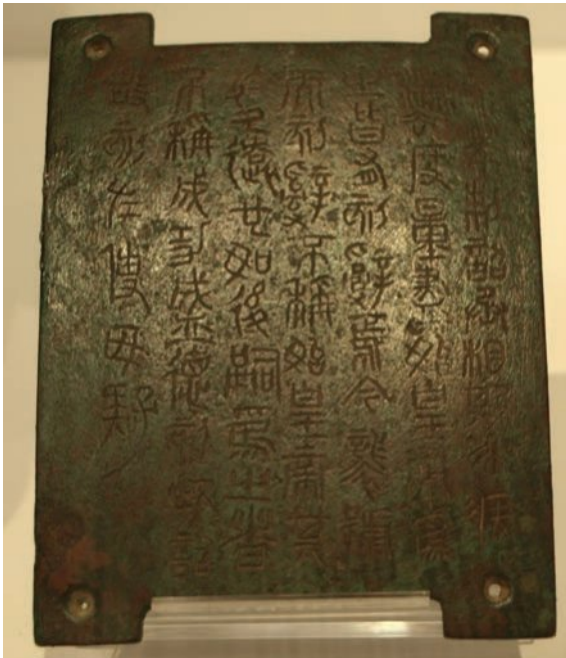 元年制詔丞相斯去疾
灋度量盡始皇帝爲
之皆有刻辭焉今襲號
而刻辭不稱始皇帝其
於久遠也如後嗣爲之者
不稱成功盛德刻此詔
故刻左使毋疑